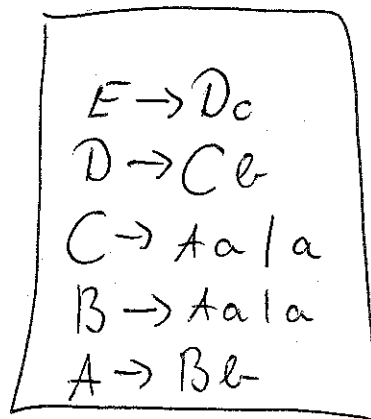 E → Dc
D → Cb
C → Aa | a
B → Aa | a
A → Bb